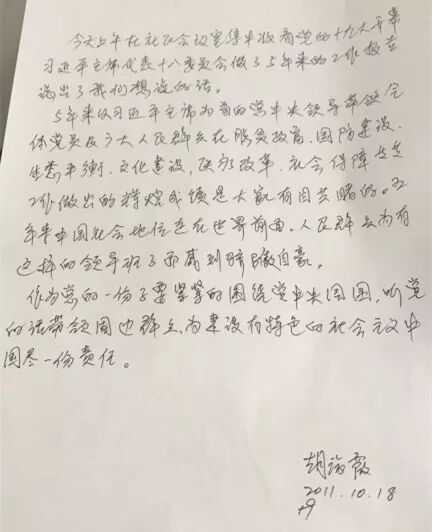 今天上午在社区会议室集中收看党的十九大开幕
习近平主席代表十八委员会做了5年来的工作报告
说出了我们想说的话。
5年来以习近平主席为首的党中央领导带领全
体党员及广大人民群众在脱贫致富、国防建设、
生态平衡、文化建设、医疗改革、社会保障等等
工作做出的辉煌成绩是大家有目共睹的。五
年来中国社会地位走在世界前面。人民群众为有
这样的领导班子而感到骄傲自豪。
作为党的一份子要紧紧的围绕党中央周围，听党
的话带领周边群众，为建设有特色的社会主义中
国尽一份责任。
胡
2011.10.18
+9